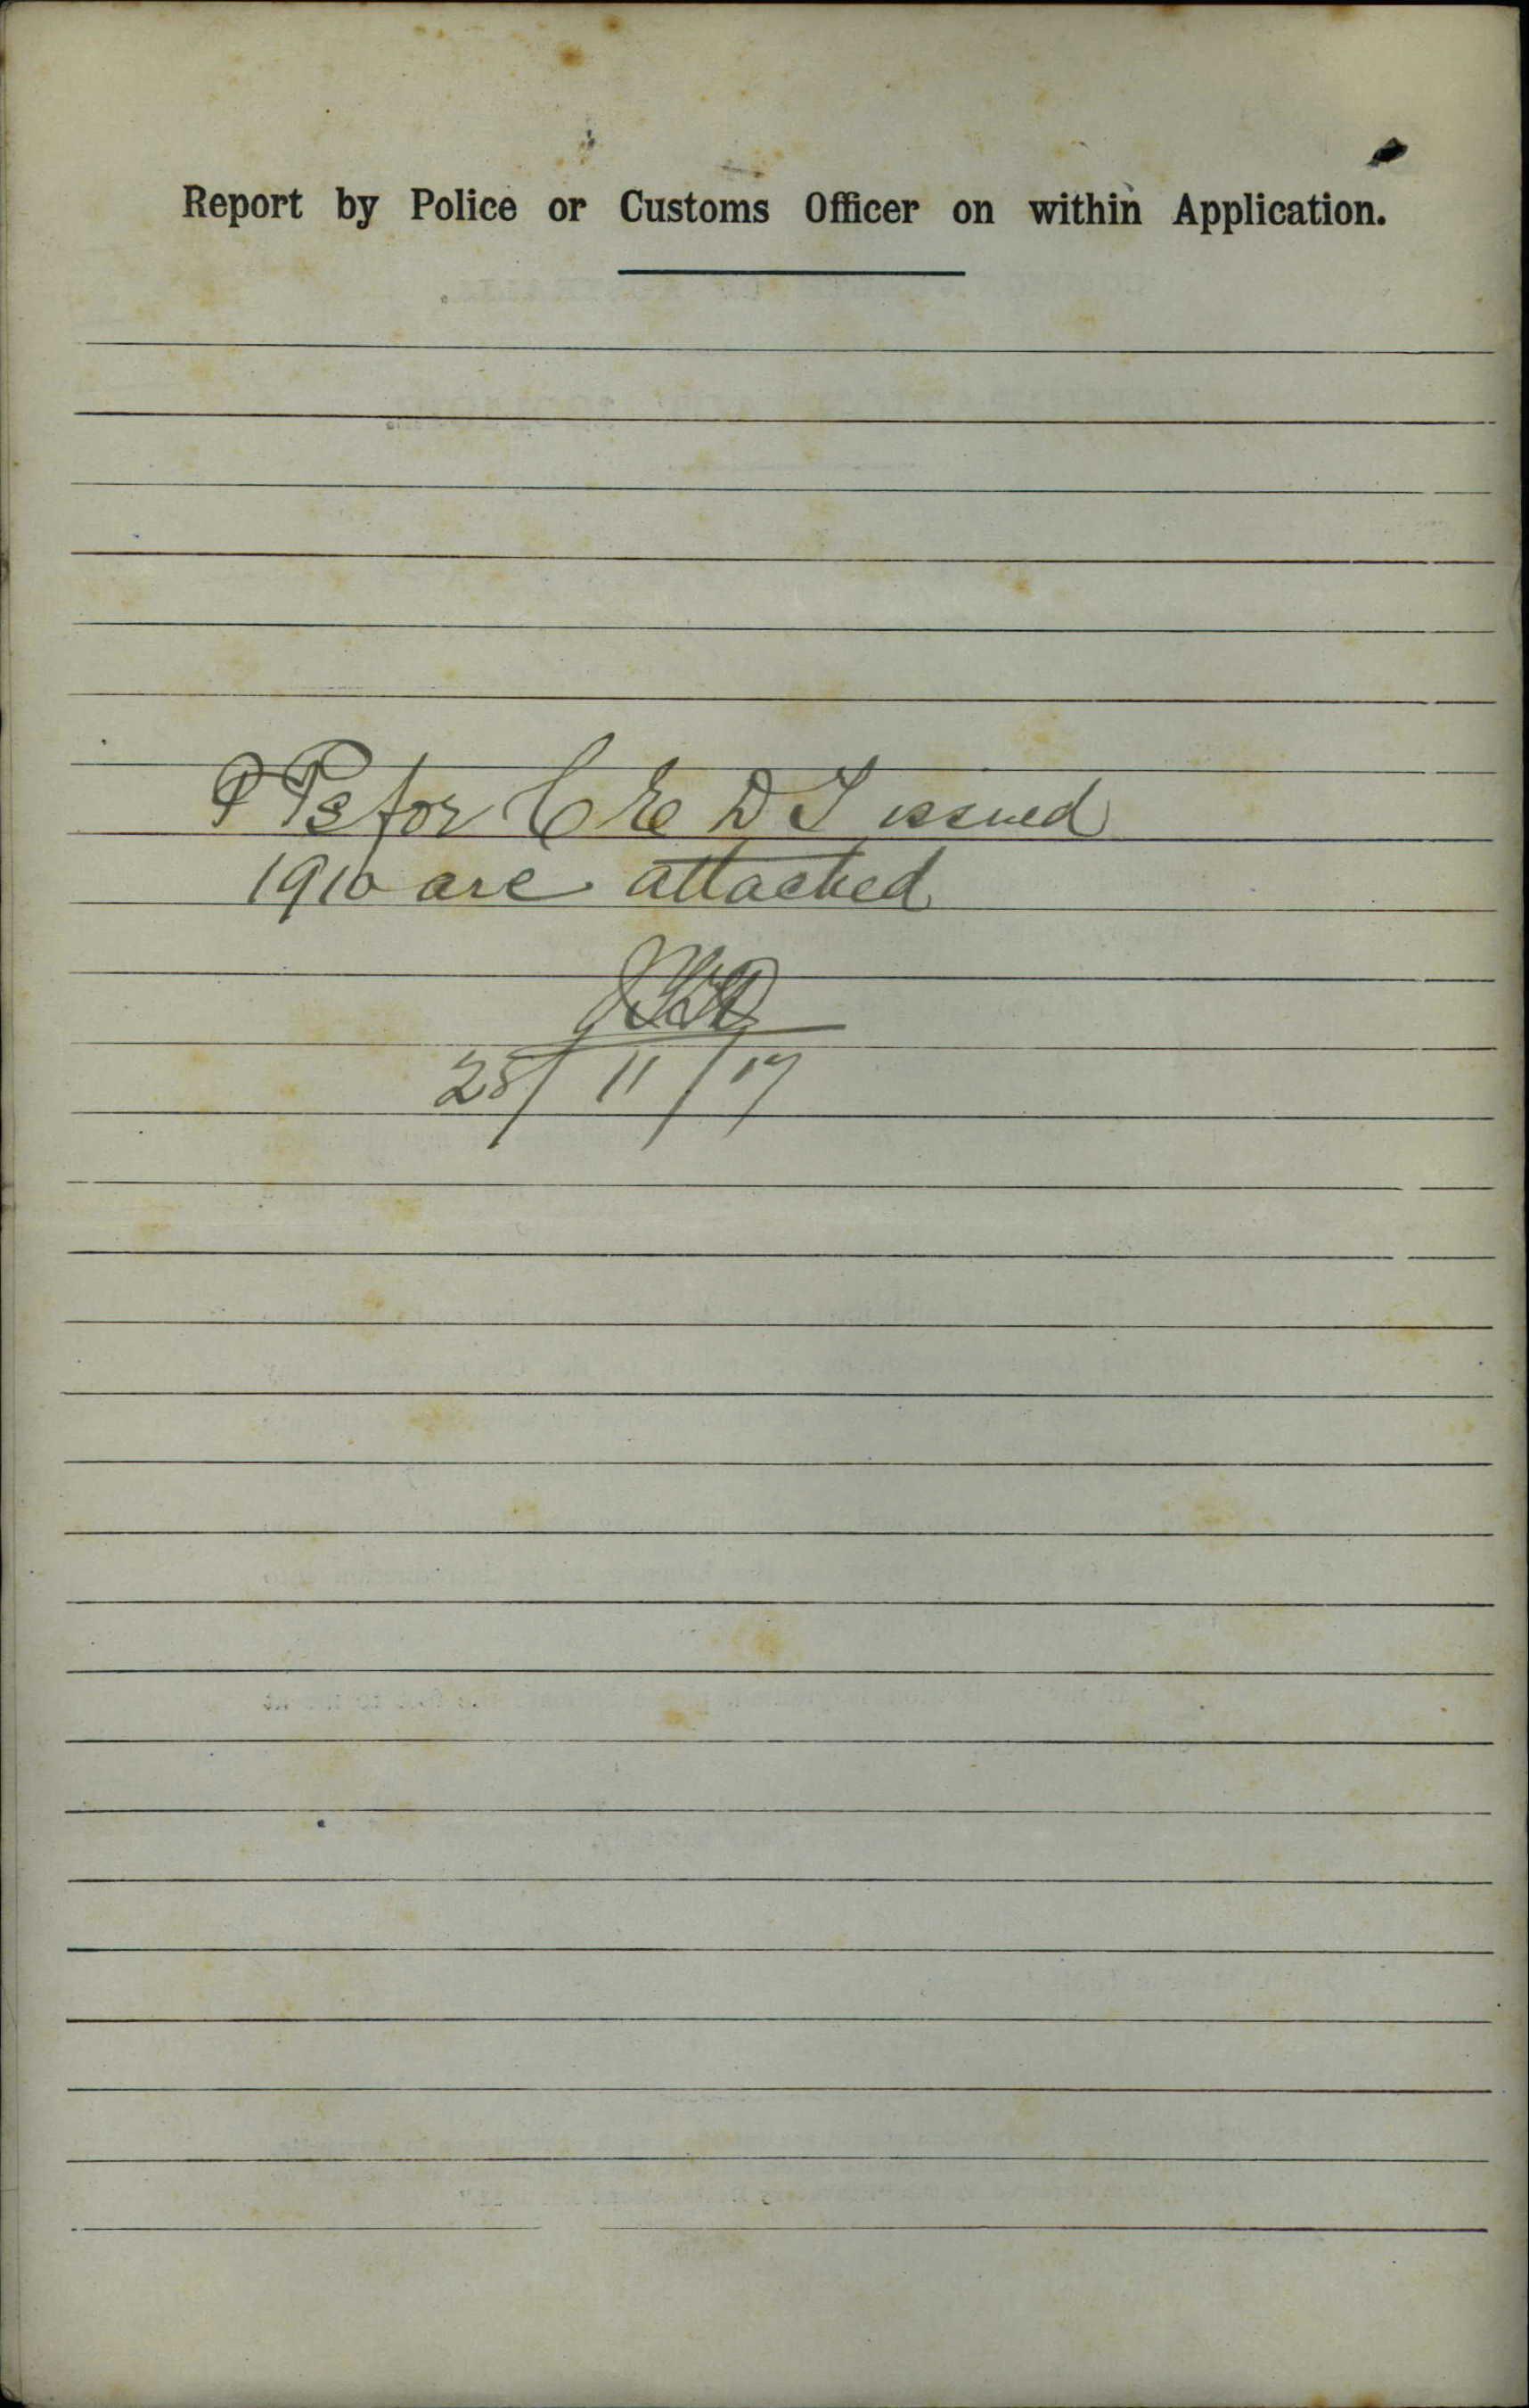 Report by Police or Customs Officer on within Application.
P Ps for C E D T issued
1910 are attached
28/11/17